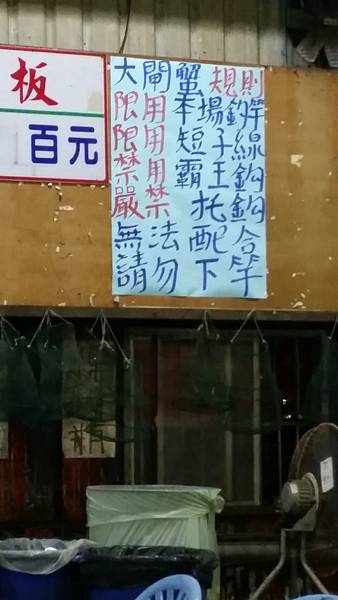 板
百元
大閘蟹規則
限用本場釣竿
限用短子線
禁用霸王鈎
嚴禁托鈎
無法配合
請勿下竿